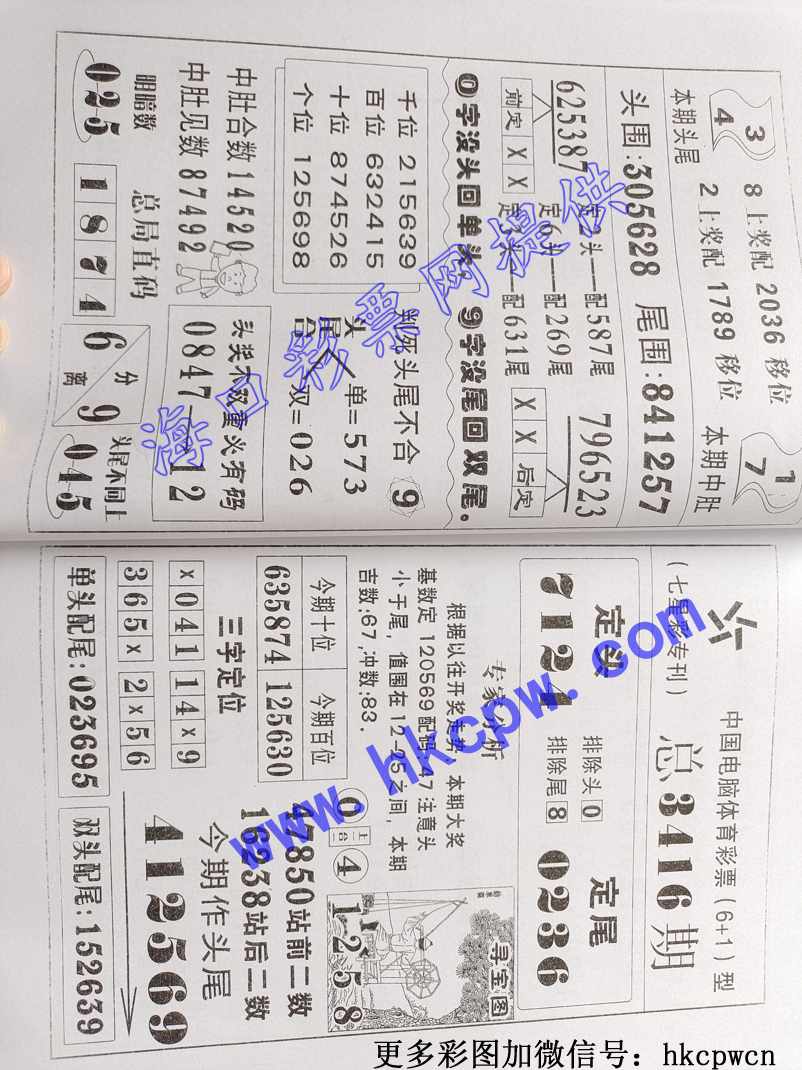 3
4
本期头尾
8上奖配 2036 移位
2上奖配 1789 移位
1
7
本期中肚
头围:305628 尾围:841257
625387
前定 X X
定2头——配587尾
定6头——配269尾
定1头——配631尾
796523
X X 后定
0字没头回单头，9字没尾回双尾。
千位 215639
百位 632415
十位 874526
个位 125698
判死头尾不合 9
头
尾
合
单=573
双=026
中肚合数14520
中肚见数87492
头奖不双重必有码
0847—12
明暗数
025
总局直码
1 8 7 4
6 分
离 9
头尾不同上
045
中国电脑体育彩票(6+1)型
(七星彩专刊)
总3416期
定头
7124
排除头 0
排除尾 8
定尾
0236
专家分析
根据以往开奖走势，本期大奖
基数定 120569配码347注意头
小于尾，值围在12-25之间，本期
吉数:67,冲数:83.
寻宝图
1-258
今期十位 今期百位
635874 125630
0 上合 4
47850站前二数
16238站后二数
三字定位
x041 14x9
365x 2x56
今期作头尾
412569
单头配尾:023695
双头配尾:152639
海口彩票网提供
www.hkcpw.com
更多彩图加微信号：hkcpwcn